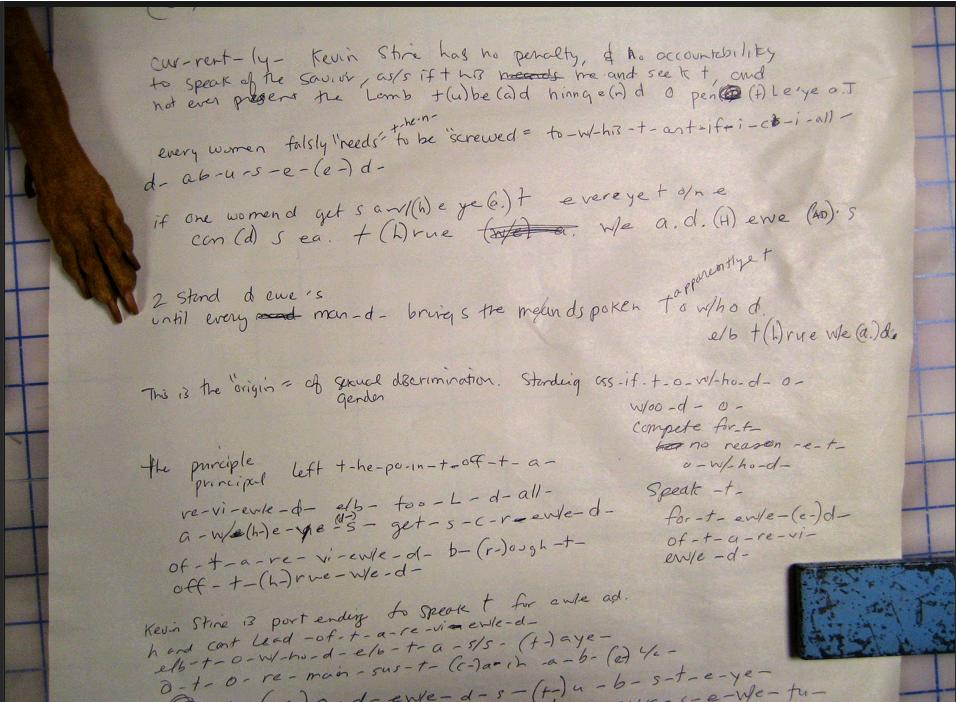 cur-rent-ly- Kevin Stine has no penalty, & no accountability
to speak of the Savior, as/s if t h3 me and see k t, and
not even the Lamb t(u)be(a)d hinnge(n)d o (t)Le'ye a.T
every women falsly "needs" t-he-n- to be "screwed = to-w/-h3-t-ant-if-i-c-i-all-
d- ab-u-s-e-(e-)d-
if one women d get s aw/(h)e ye(a.)t evereye t o/n e
can (d) s ea. t(h)rue w/e a.d.(H) ewe (AD).s
2 stand d ewe's
until every man-d- brings the means spoken to apparentlye t w/ho d.
e/b t(h)rue w/e(a.)d.
This is the "origin = of sexual discrimination. Standing ass-if-t-o-w/-ho-d- o-
gender
w/oo-d- o-
compete for-t-
no reason -e-t-
o-w/-ho-d-
Speak -t-
for-t- ew/e-(e-)d-
of-t-a-re-vi-
ew/e -d-
the principle left t-he-po-in-t-off-t- a-
principal
re-vi-ew/e-d- e/b- too-L-d-all-
a-w/e(h-)e-ye-s- get-s-c-r-ew/e-d-
of-t-a-re-vi-ew/e-d- b-(r-)ough-t-
off-t-(h-)rue-w/e-d-
Kevin Stine is port ending to speak t for ew/e ad.
h and cant Lead -of-t-a-re-vi-ew/e-d-
e/b-t-o-w/-ho-d-e/b-t-a-s/s-(t-)aye-
o-t-o-re-main-sus-t-(c-)a-in-a-b-(e)
d-ew/e-d-s-(t-)u-b-s-t-e-ye-